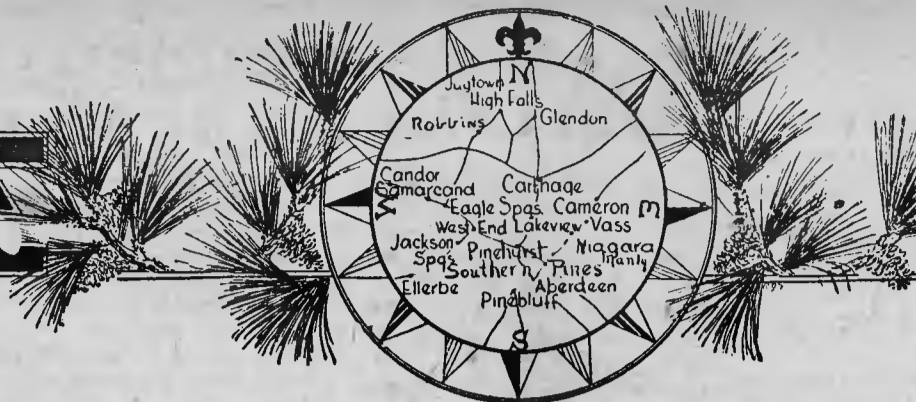 N
Jugtown
High Falls
Robbins Glendon
Candor
Samarcand Carthage
W Eagle Spqs. Cameron E
West End Lakeview Vass
Jackson Spqs Pinehurst Niagara
Manly
Southern Pines
Ellerbe Aberdeen
Pinebluff
S